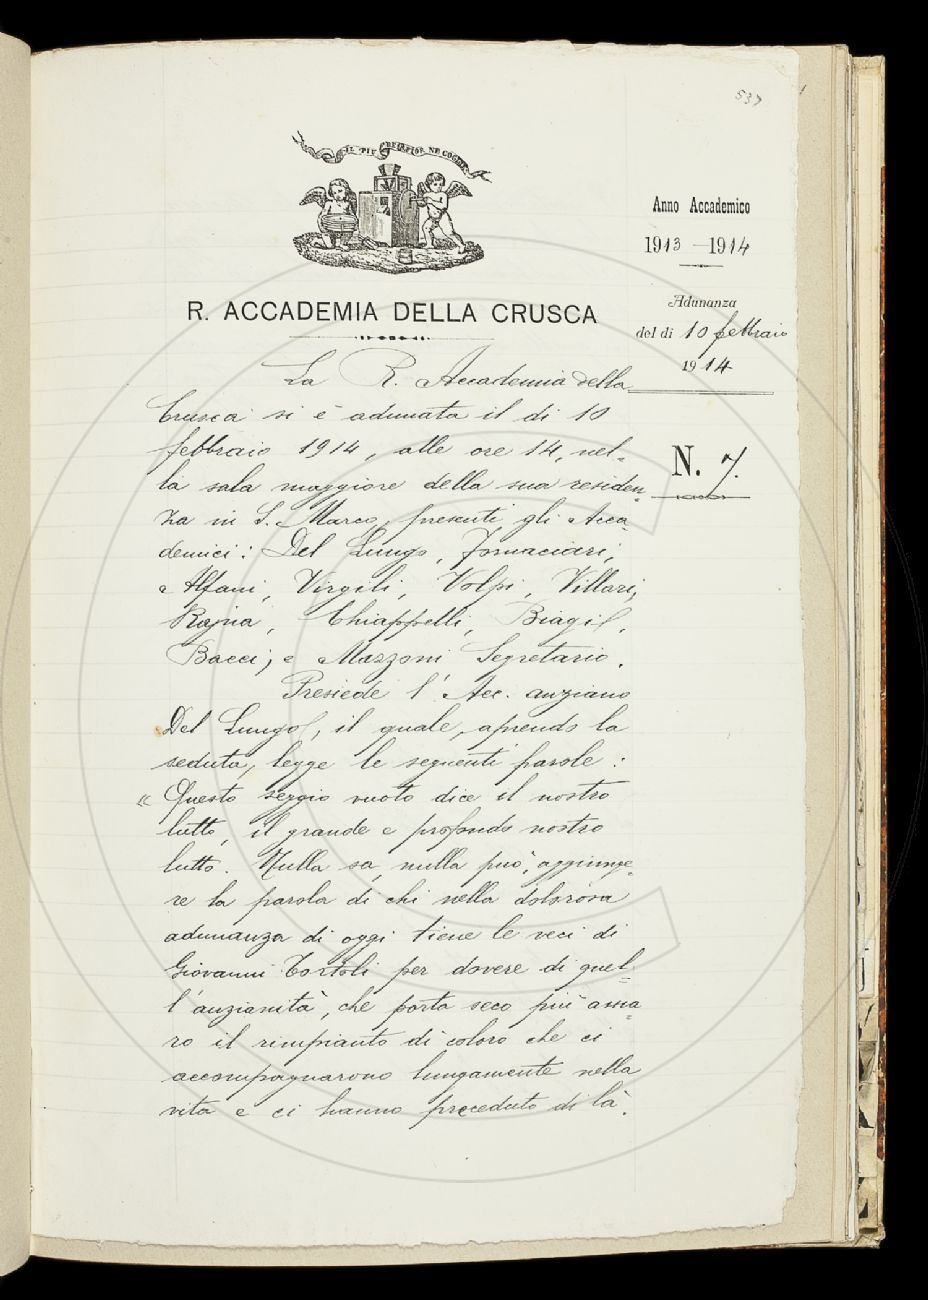 537
IL PIÙ BEL FIOR NE COGLIE
Anno Accademico
1913 — 1914
Adunanza
del dì 10 febbraio
1914
N. 7.
R. ACCADEMIA DELLA CRUSCA
La R. Accademia della
Crusca si è adunata il dì 10
febbraio 1914, alle ore 14, nel-
la sala maggiore della sua residen-
za in S. Marco, presenti gli Acca
demici: Del Lungo, Fornaciari,
Alfani, Virgili, Volpi, Villari,
Rajna, Chiappelli, Biagi,
Bacci, e Mazzoni Segretario.
Presiede l'Acc. anziano
Del Lungo, il quale, aprendo la
seduta, legge le seguenti parole:
« Questo seggio vuoto dice il nostro
lutto, il grande e profondo nostro
lutto. Nulla sa, nulla può, aggiunge-
re la parola di chi nella dolorosa
adunanza di oggi tiene le veci di
Giovanni Tortoli per dovere di quel-
l'anzianità, che porta seco più ama-
ro il rimpianto di coloro che ci
accompagnarono lungamente nella
vita e ci hanno preceduto di là.